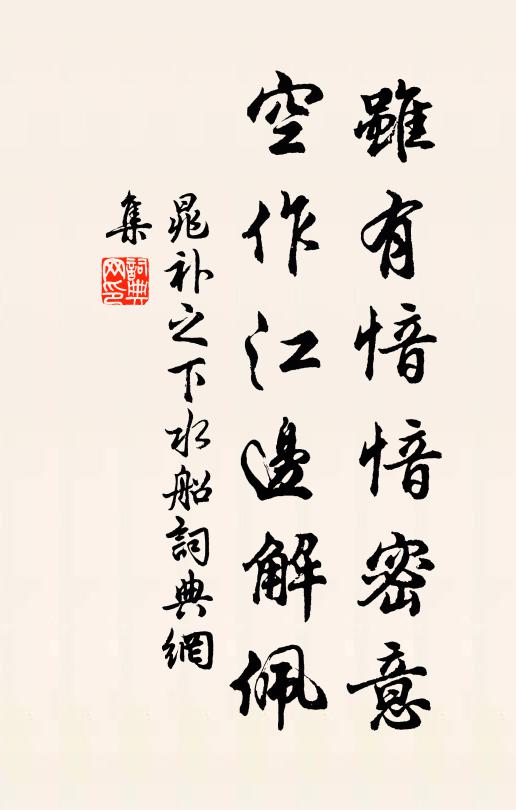 雖有愔愔密意
空作江邊解佩
晁補之下水船詞典網
集
詞典網印